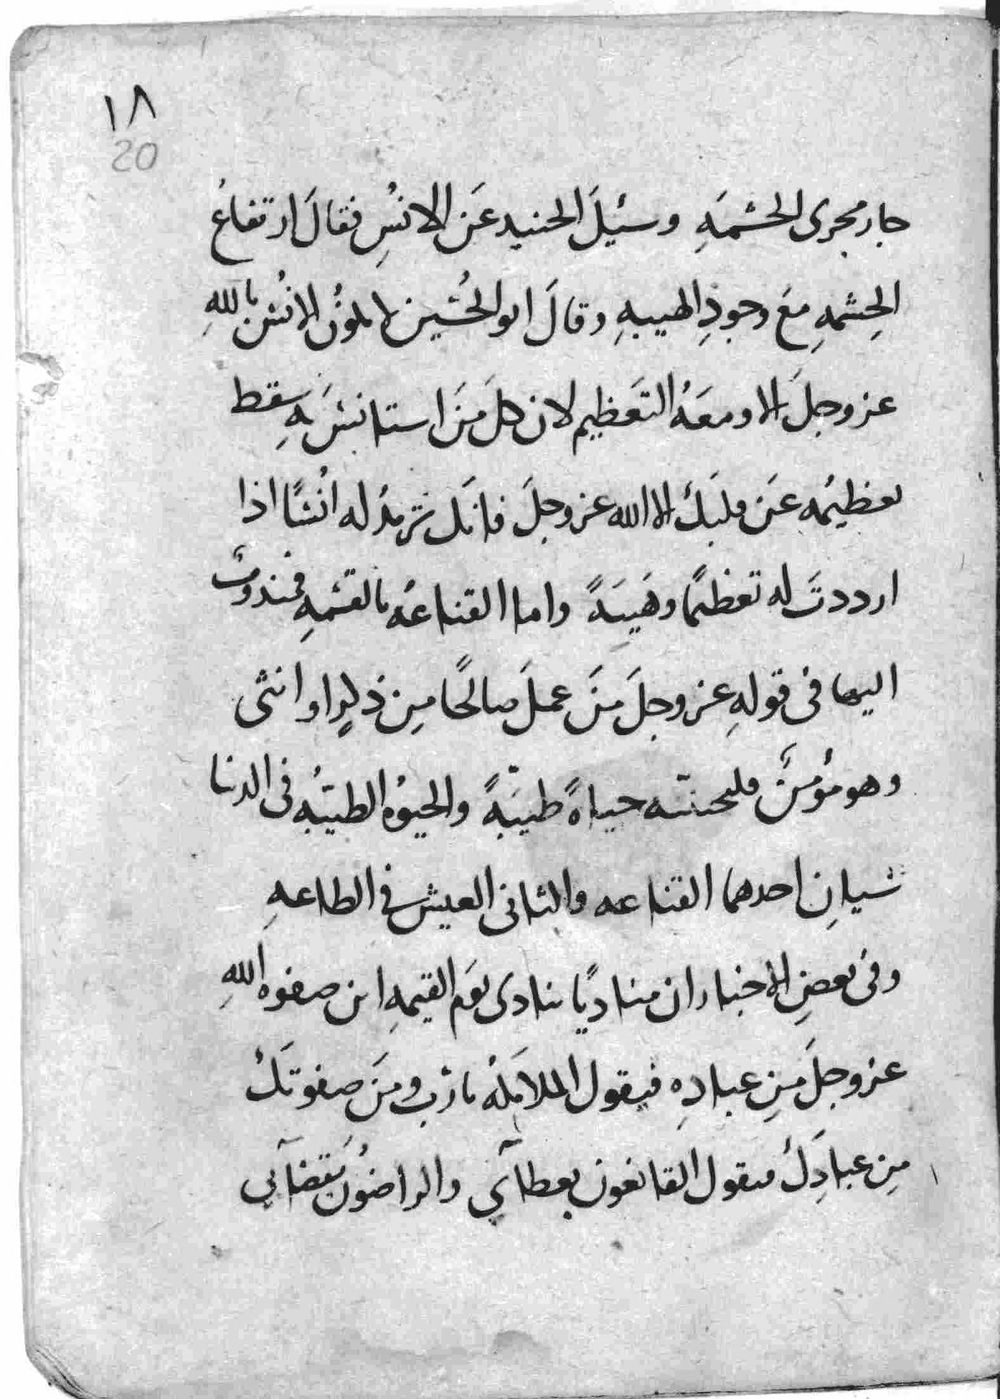 ١٨
20
جار مجرى الحشمَهِ وسئيلَ الجنيد عَن الانسِ فقالَ ارتفاعُ
الحِشمهِ معَ وجودِ الهيبهِ وقالَ ابو الحُسَين لا يكونُ الانسُ باللهِ
عز وجلَ الا ومعَهُ التعَظيم لان كل مَن استانسَ بهِ سقط
تعظيمُه عَن قلبَكَ الا الله عز وجلَ فانكَ تزيدُ له انُسًا اذا
ارددتَ له تعظيمًا وهَيبَةً واما القناعهُ بالقسمهِ فمندوبٌ
اليها فى قولهِ عز وجلَ مَن عملَ صالحًا مِن ذكرٍ او انثى
وهو مؤمنٌ فليحيينّه حياةً طيّبةً والحيوٰه الطيّبه فى الدنيا
شيانِ احدهما القناعه والثانى العيش فى الطاعهِ
وفى بعضِ الاخبار ان مناديًا ينادى يَوَم القيمهِ اين صفوه اللهِ
عز وجلَ مِن عبادِهِ فيقول الملايكهُ يارب ومَن صفوتكَ
مِن عبادِكَ فيقول القانعون بعطآئي والراضونَ بقضآئي